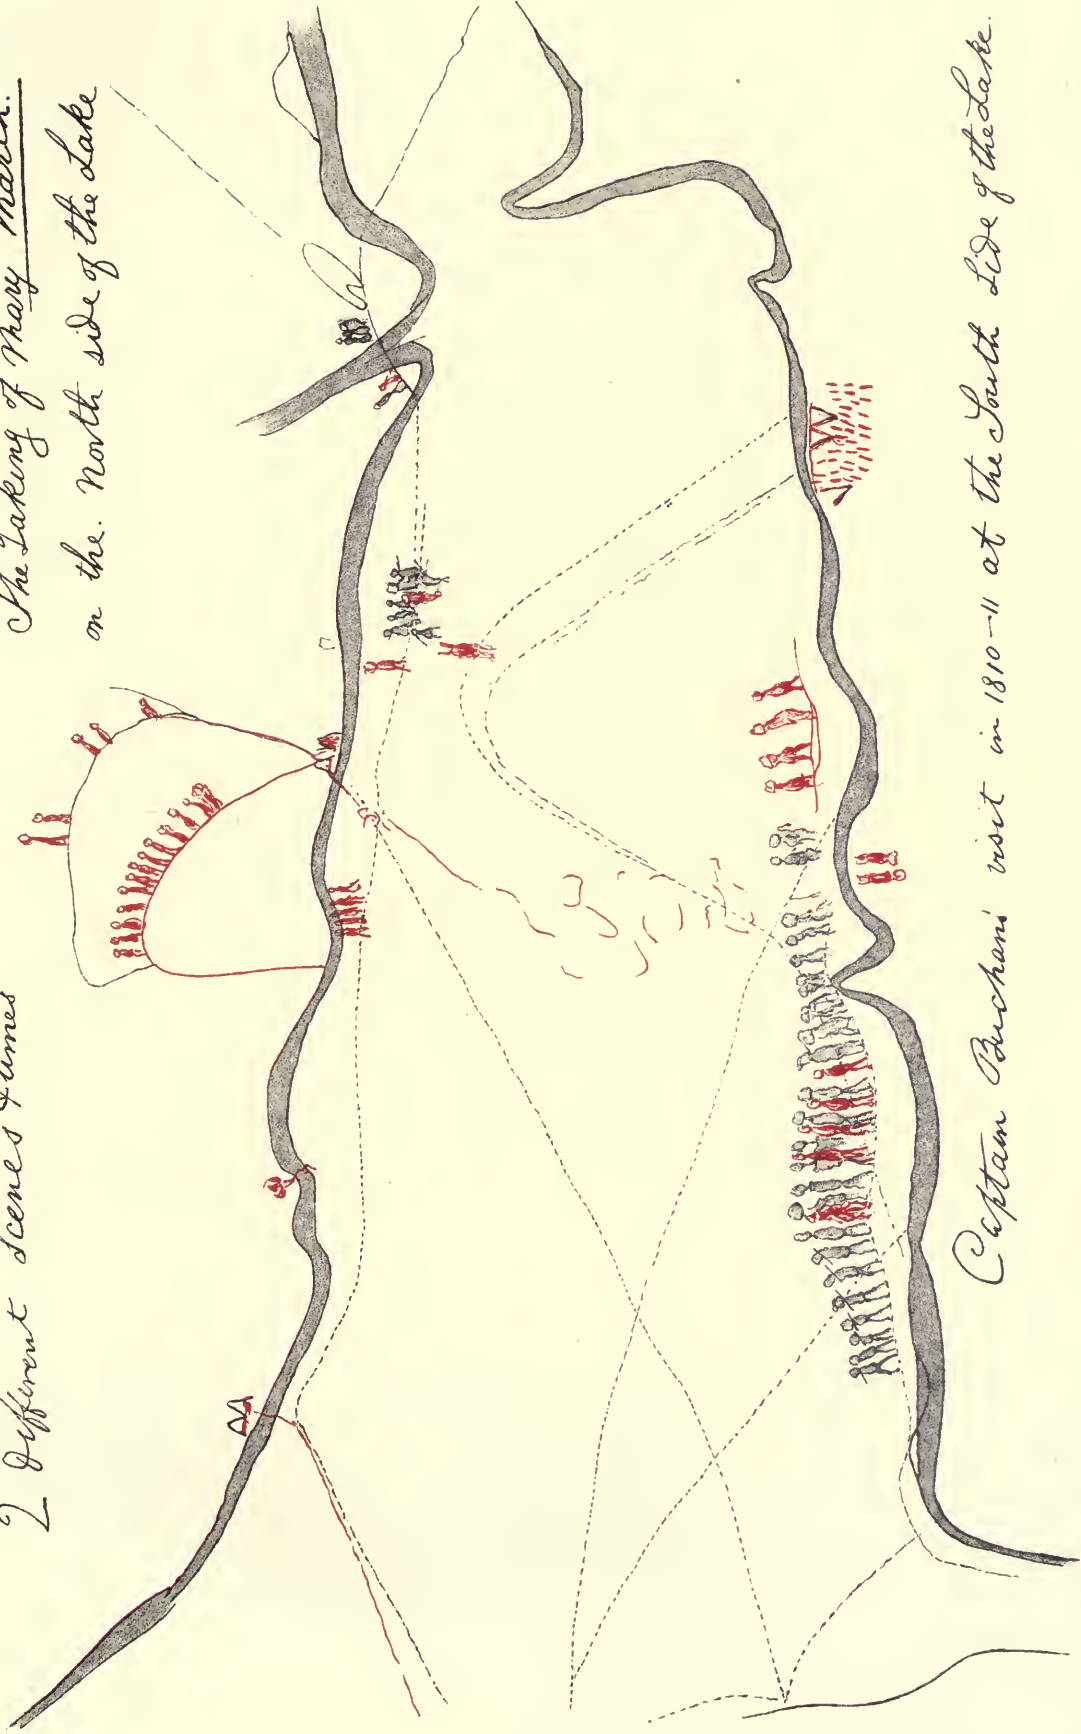 2 different scenes & times
The Taking of Mary March.
on the. North side of the Lake
Captain Buchans visit in 1810-11 at the South Side of the Lake.